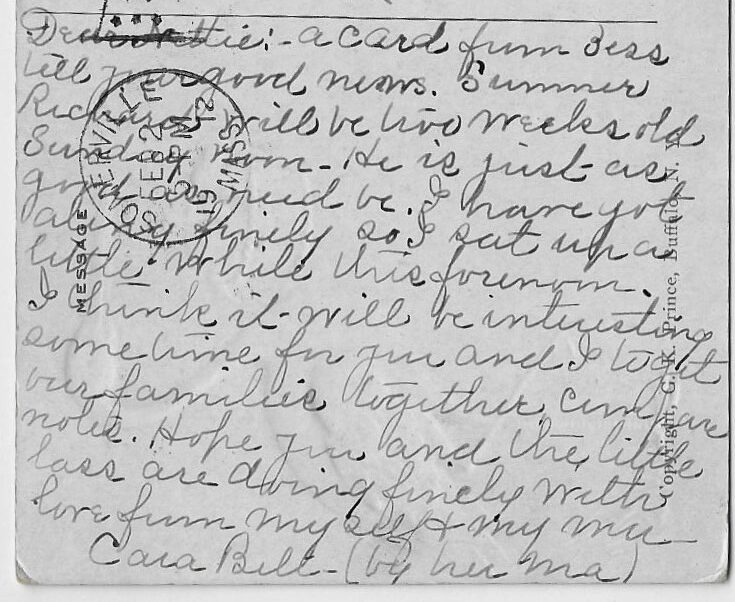 Dear Nettie:- a card from Bess
tell your good news. Summer
Richard will be two weeks old
Sunday noon - He is just as
good as need be. I have got
along finely so I sat up a
little while this forenoon.
I think it will be interesting
some time for you and I to get
our families together, compare
notes. Hope you and the little
lass are doing finely with
love from myself & my
Bill - (by her ma)
MESSAGE
ERVILLE
FEB 2
19 12
MASS
Copyright, C. K. Prince, Buffalo, N. Y.